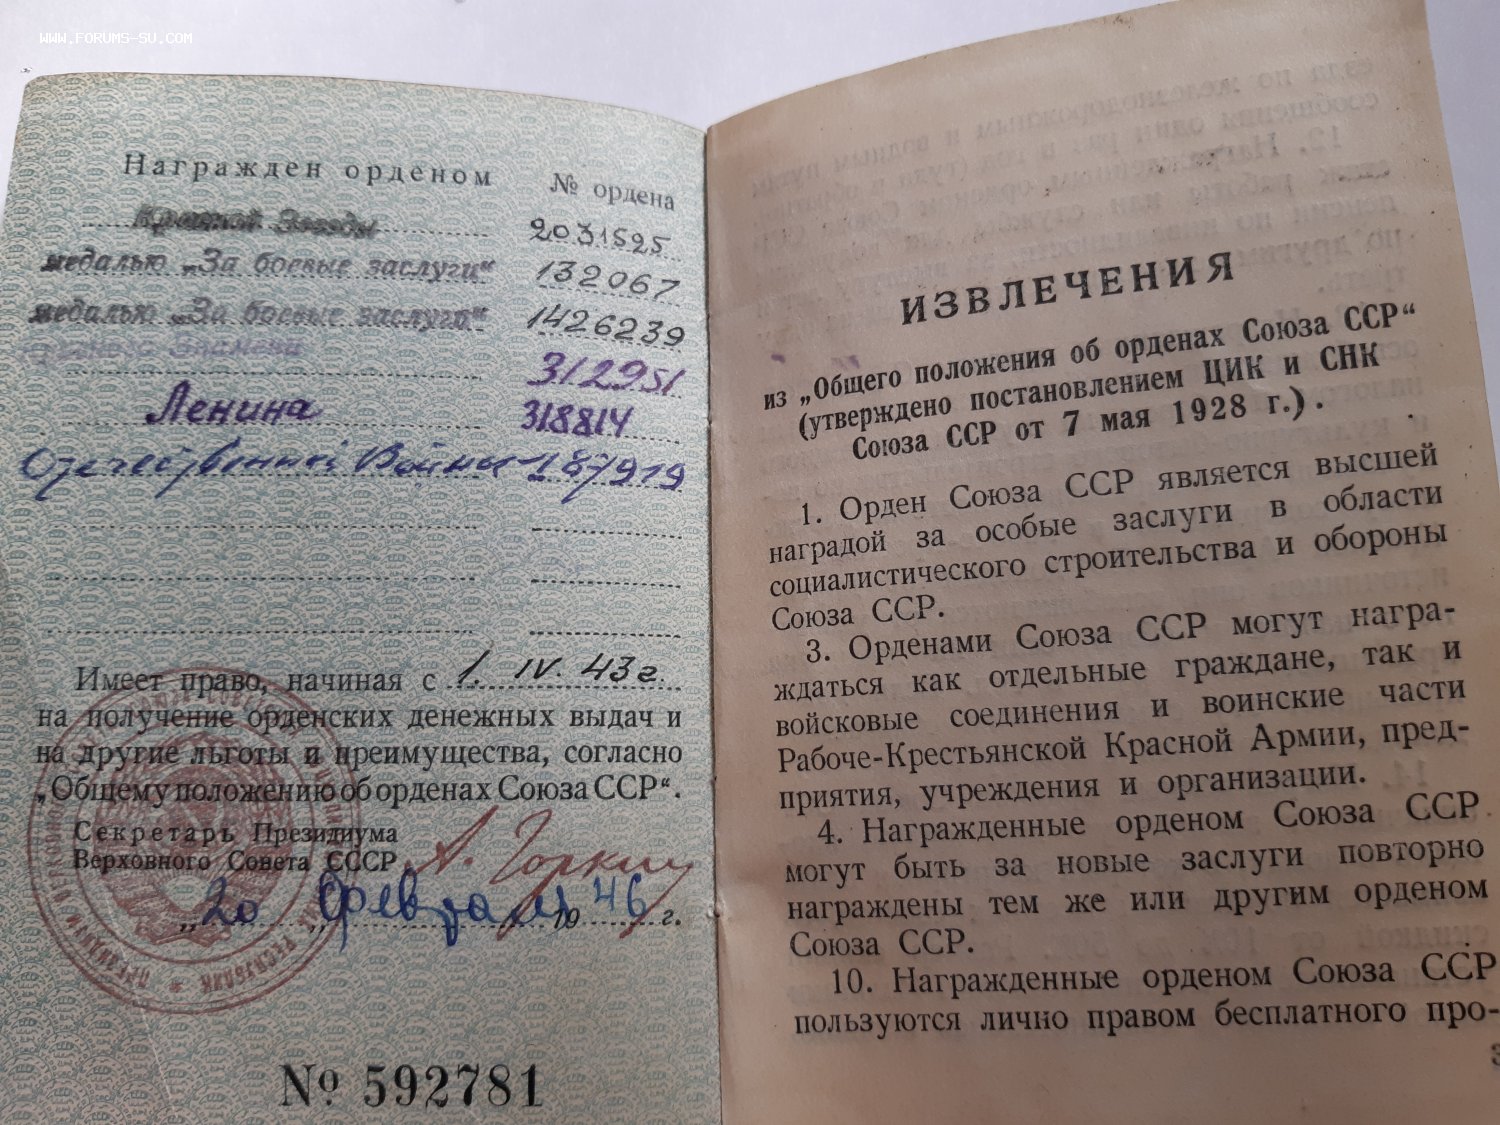 WWW.FORUMS-SU.COM
Награжден орденом № ордена
Красной Звезды 2031525
медалью „За боевые заслуги“ 132067
медалью „За боевые заслуги“ 1426239
Красного Знамени 312951
Ленина 318814
Отечественной Войны 187919
Имеет право, начиная с 1. IV. 43 г.
на получение орденских денежных выдач и
на другие льготы и преимущества, согласно
„Общему положению об орденах Союза ССР“.
Секретарь Президиума
Верховного Совета СССР А. Горкин
„20 „ февраля 1946 г.
№ 592781
ИЗВЛЕЧЕНИЯ
из „Общего положения об орденах Союза ССР“
(утверждено постановлением ЦИК и СНК
Союза ССР от 7 мая 1928 г.).
1. Орден Союза ССР является высшей
наградой за особые заслуги в области
социалистического строительства и обороны
Союза ССР.
3. Орденами Союза ССР могут награ-
ждаться как отдельные граждане, так и
войсковые соединения и воинские части
Рабоче-Крестьянской Красной Армии, пред-
приятия, учреждения и организации.
4. Награжденные орденом Союза ССР
могут быть за новые заслуги повторно
награждены тем же или другим орденом
Союза ССР.
10. Награжденные орденом Союза ССР
пользуются лично правом бесплатного про-
3